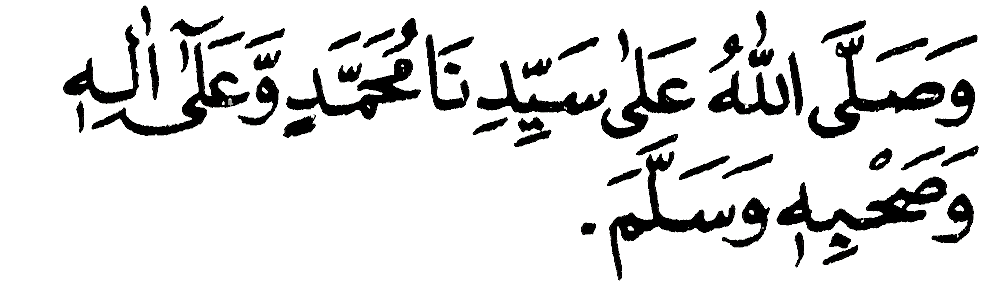 وَصَلَّى اللهُ عَلٰى سَيِّدِنَا مُحَمَّدٍ وَّعَلٰٓى اٰلِهٖ
وَصَحْبِهٖ وَسَلَّمَ.